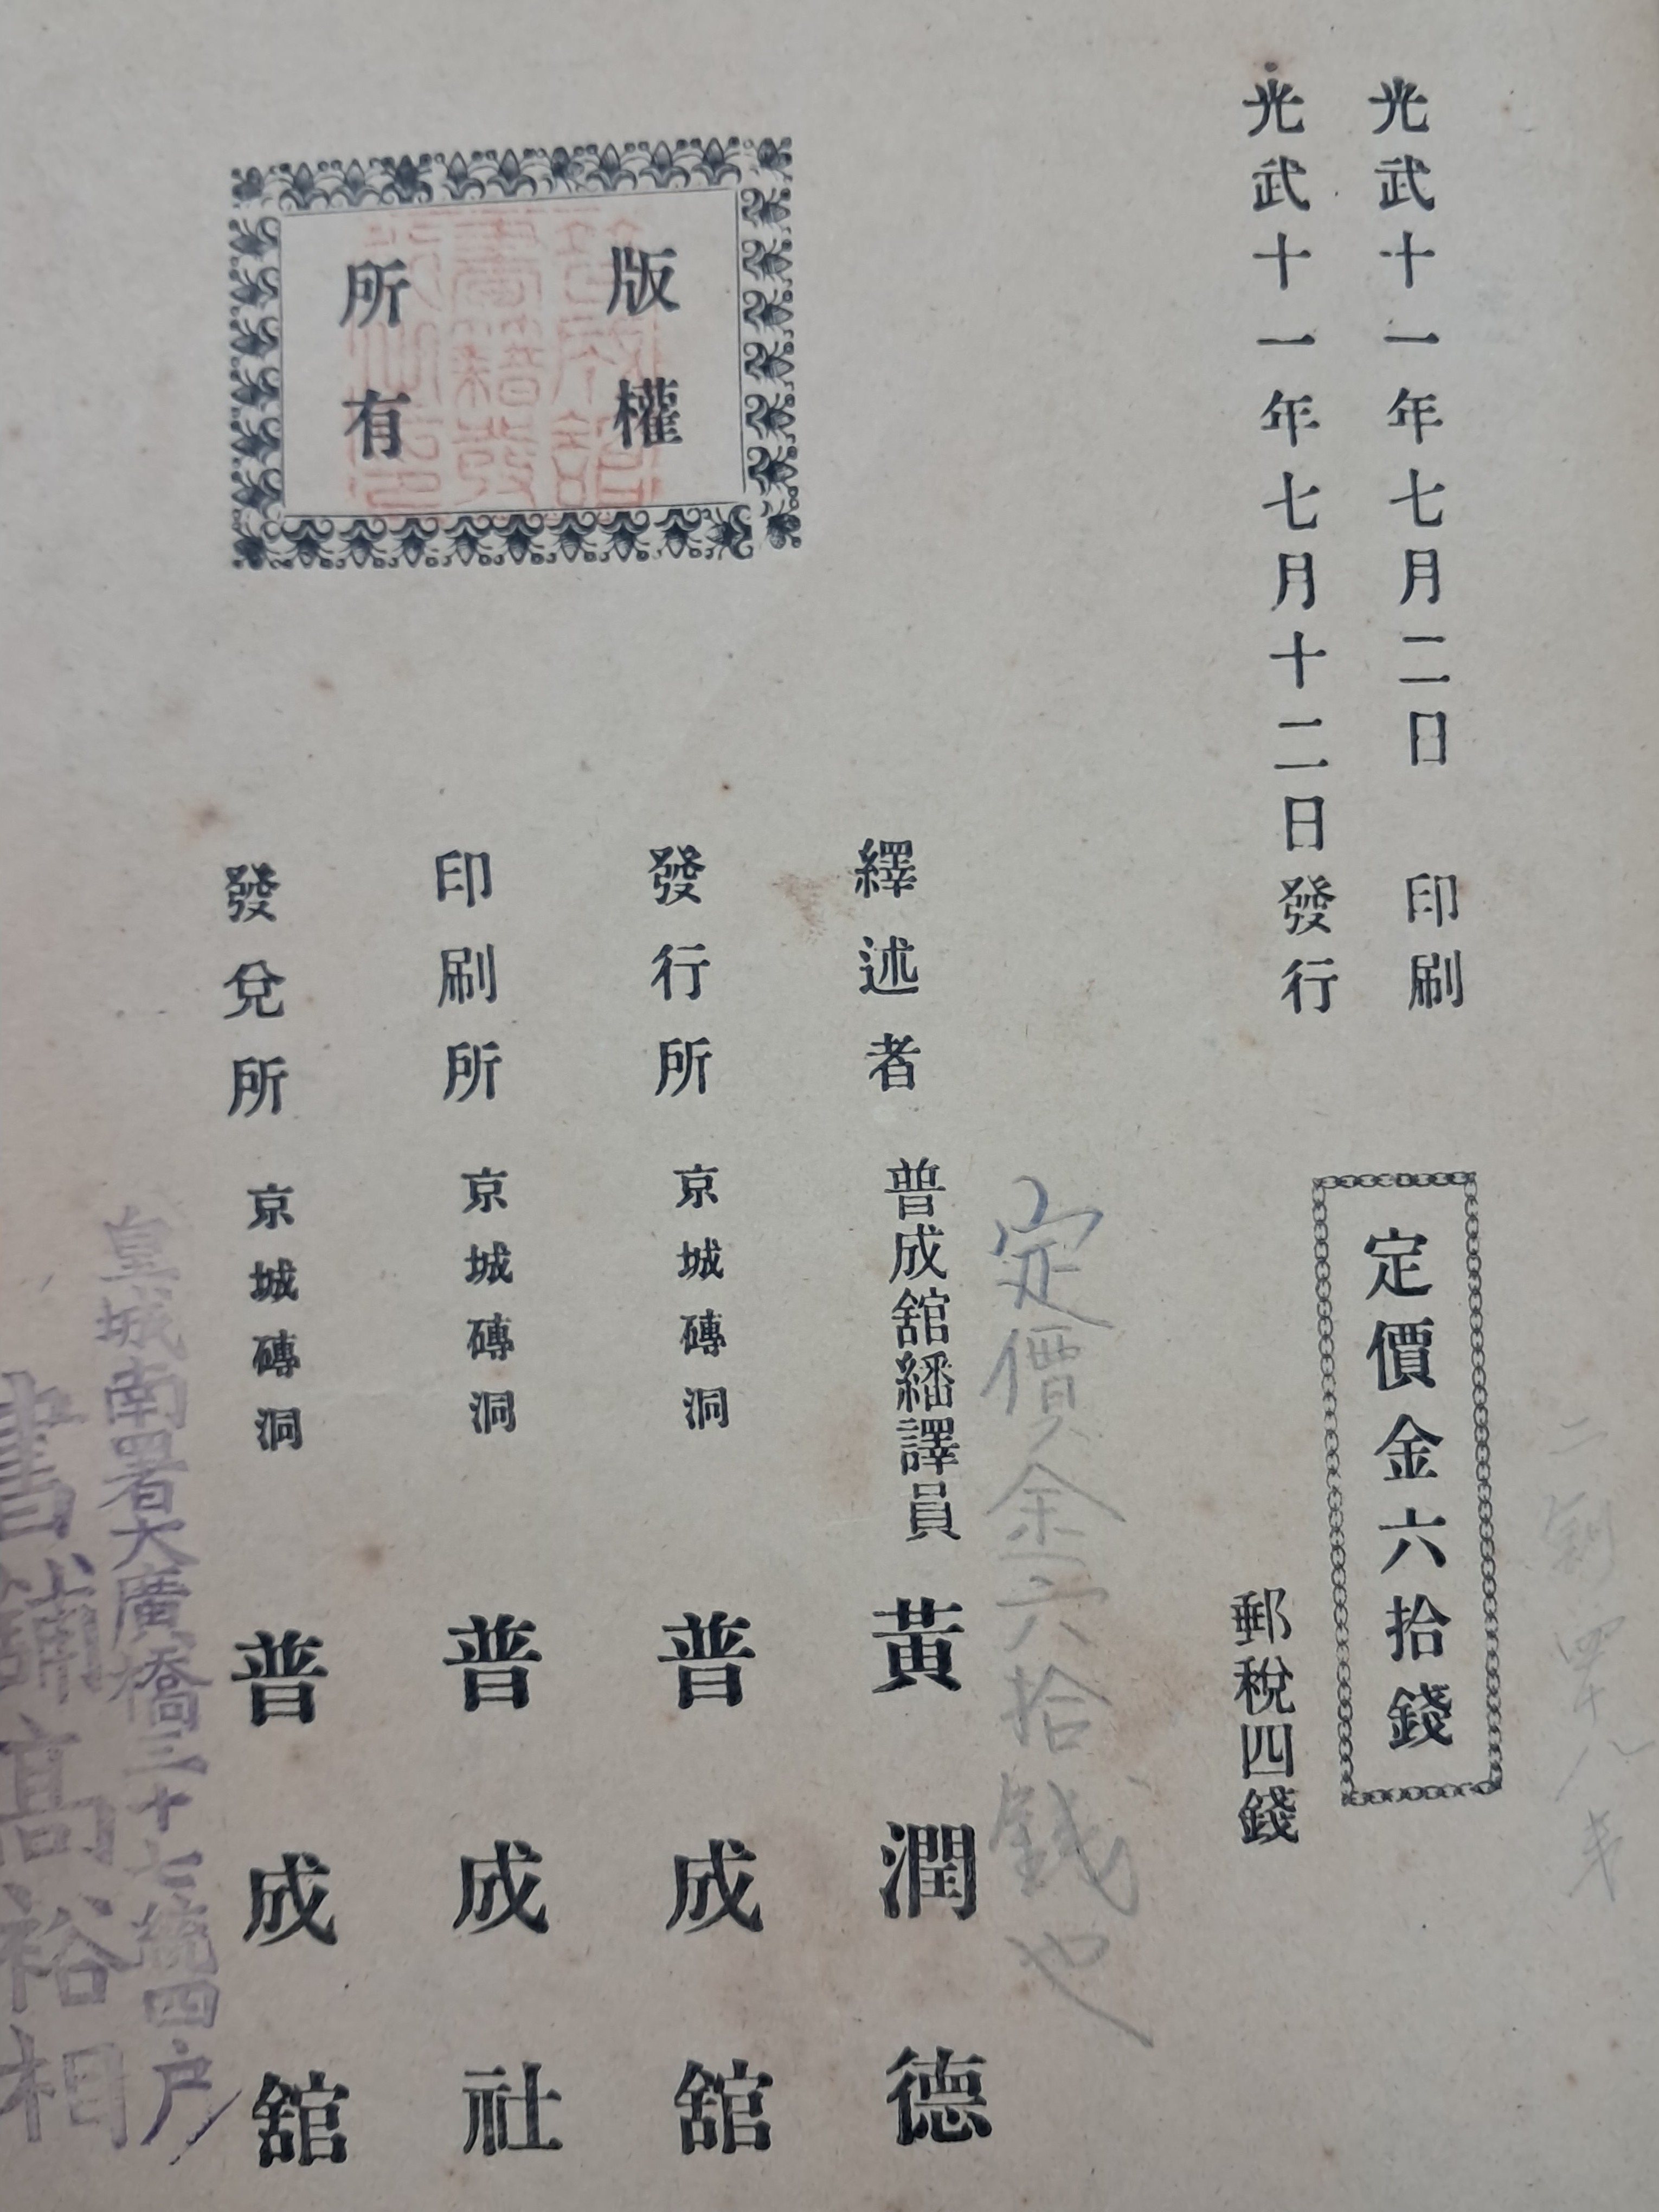 光武十一年七月二日 印刷
光武十一年七月十二日發行
定價金六拾錢
郵稅四錢
定價金六拾錢也
繹述者 普成舘繙譯員 黃潤德
發行所 京城磚洞 普成舘
印刷所 京城磚洞 普成社
發兌所 京城磚洞 普成舘
版權
所有
皇城南署大廣橋三十七統四戶
書舖高裕相